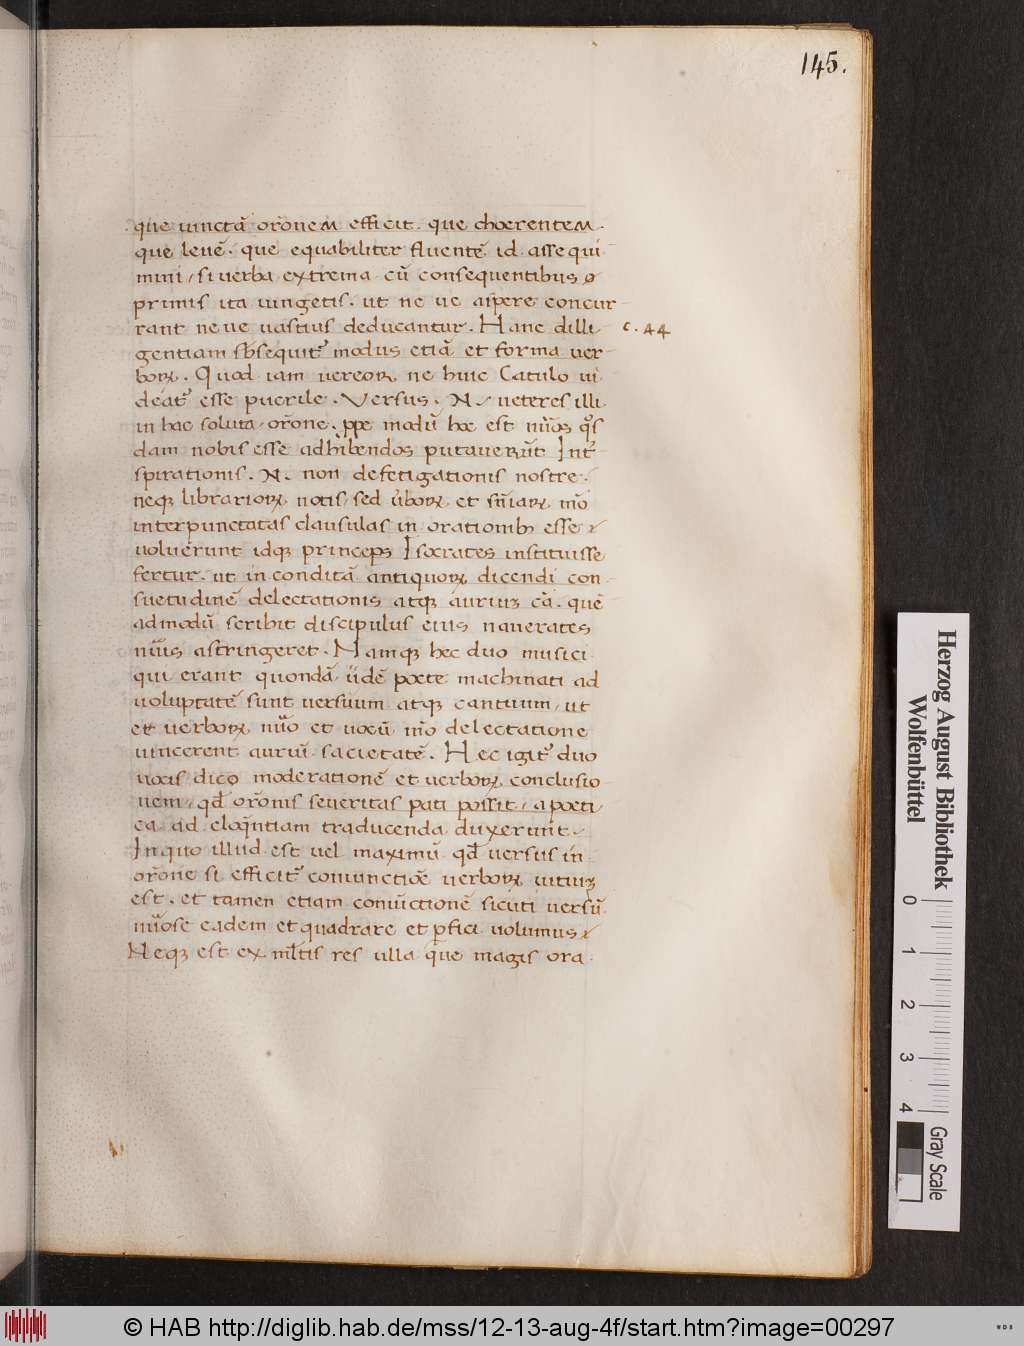 145.
que uinctā or̄onem efficit. que choerentem.
que leuē. que equabiliter fluentē id assequi
mini, si uerba extrema cū consequentibus
primis ita iungetis. ut ne ue aspere concur
rant neue uastius deducantur. Hanc dilli
c. 44
gentiam sb̄sequit᷑ modus etiā et forma uer
boꝝ. Quod iam uereoꝝ ne huic Catulo ui
deat᷑ esse puerile. Versus. N. ueteres illi
in hac soluta or̄one. ꝓpe modū hoc est nūos q̊s
dam nobis esse adhibendos putauerūt Int᷑
spirationis. N. non defetigationis nostre.
neqꝫ librarioꝝ notis, sed ūboꝝ et sn̄iaꝝ mō
interpunctatas clausulas in orationibꝫ esse
uoluerunt idqꝫ princeps Isocrates instituisse
fertur. ut in conditā antiquoꝝ dicendi con
suetudinē delectationis atqꝫ auriuꝫ cā. quē
admodū scribit discipulus eius naucrates
nūis astringeret. Namqꝫ hec duo musici.
qui erant quondā iidē poete machinati ad
uoluptatē sunt uersuum atqꝫ cantuum, ut
et uerboꝝ nūo et uocū mō delectatione
uincerent auruī sacietatē. Hec igit᷑ duo
uocis dico moderationē et uerboꝝ conclusio
nem, qd̄ or̄onis seueritas pati possit, a poeti
ca ad eloq̄ntiam traducenda duxerunt.
In quo illud est uel maximū qd̄ uersus in
or̄one si efficit᷑ coniunctiōe uerboꝝ uitiuꝫ
est. et tamen etiam conuictionē sicuti uersū
nūose eadem et quadrare et ꝑfici uolumus
Neqꝫ est ex ml̄tis res ulla que magis ora
Herzog August Bibliothek
Wolfenbüttel
0 1 2 3 4
Gray Scale
© HAB http://diglib.hab.de/mss/12-13-aug-4f/start.htm?image=00297